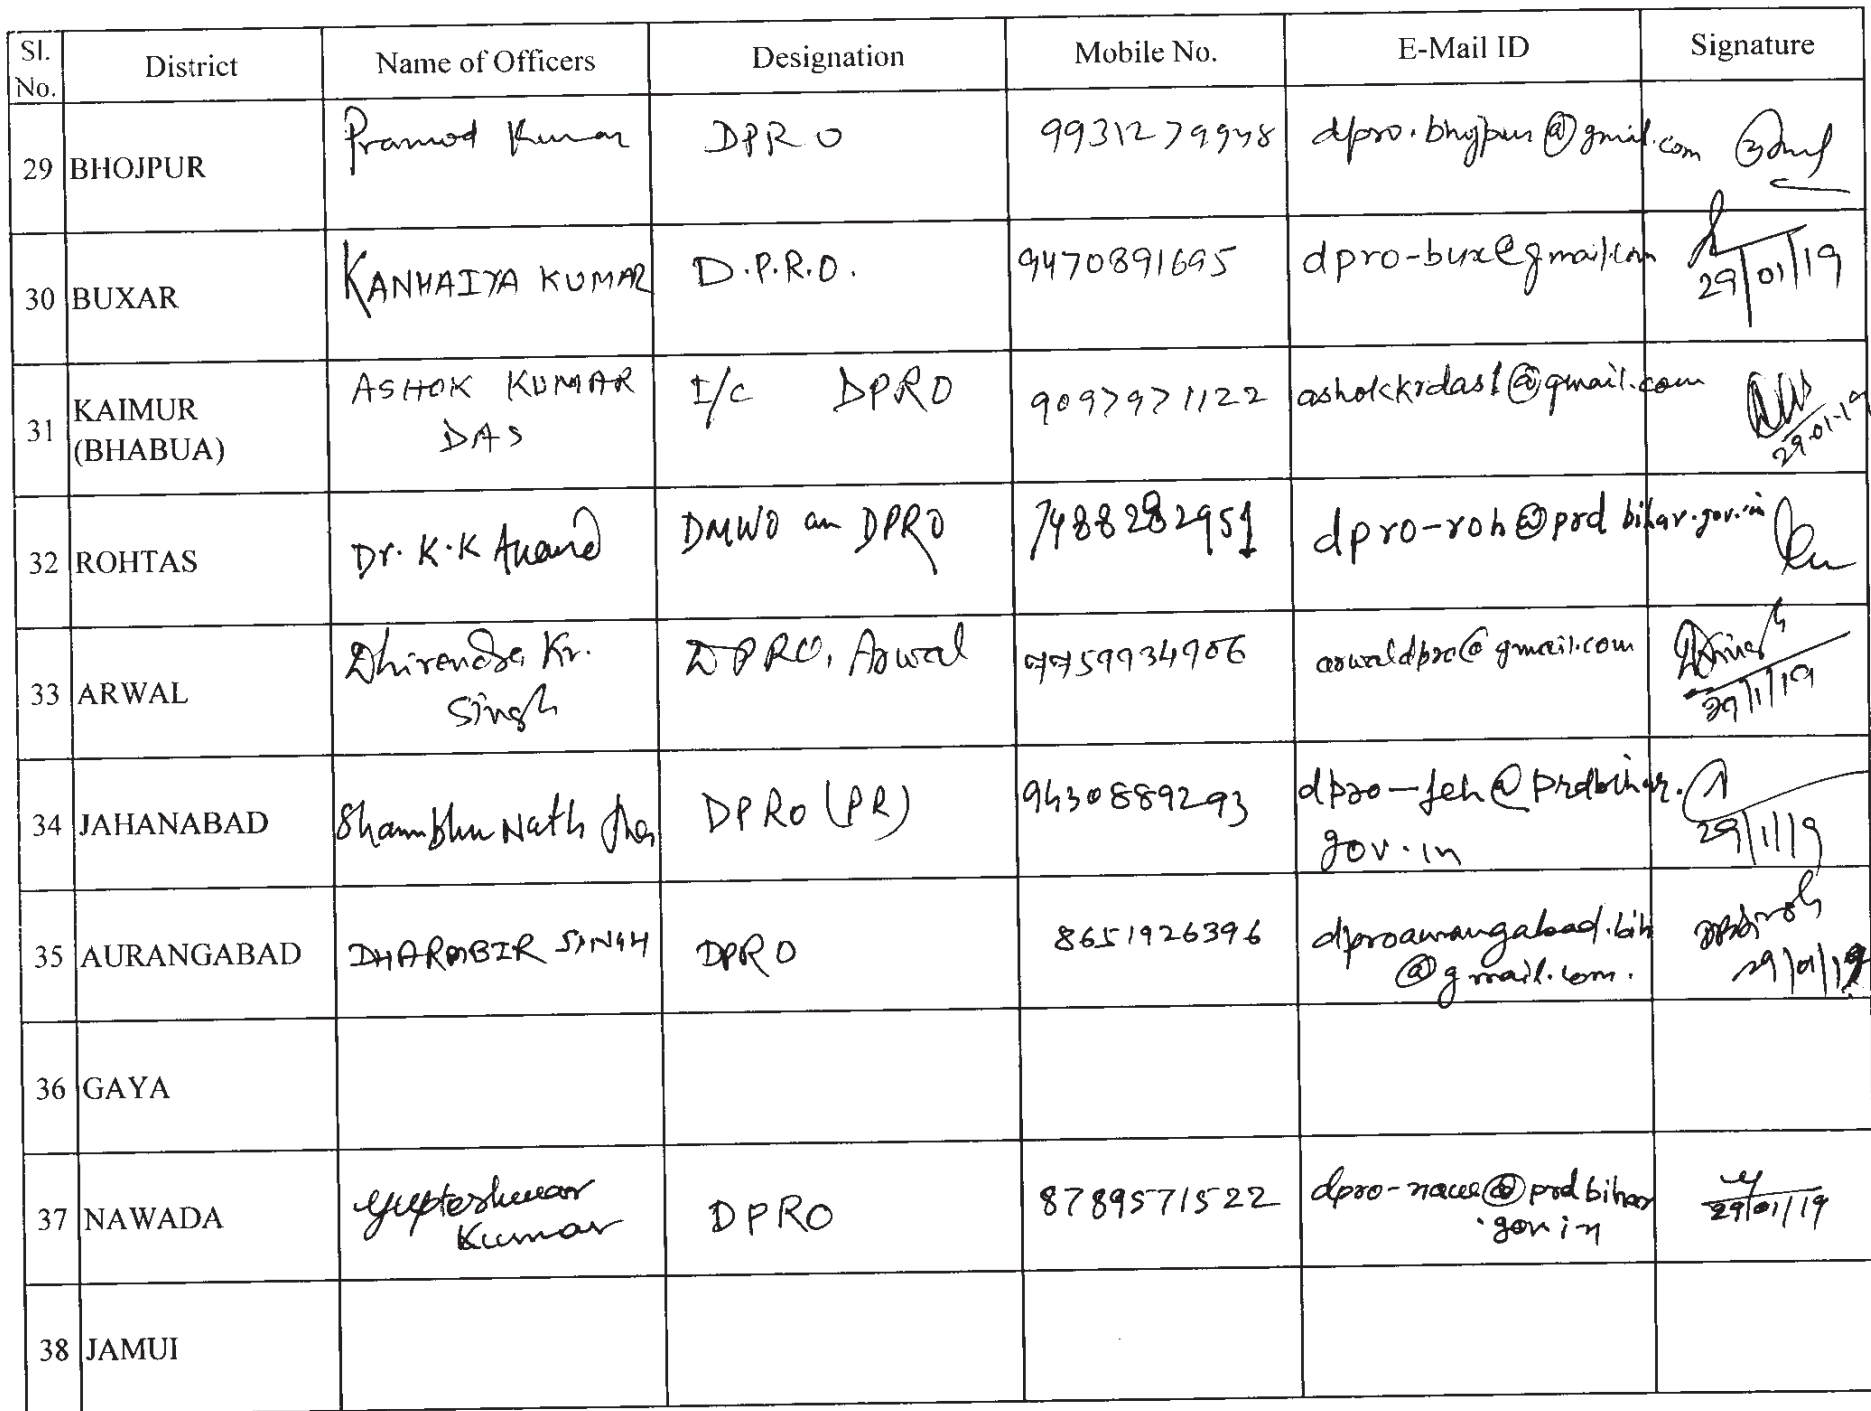 Sl. No. District Name of Officers Designation Mobile No. E-Mail ID Signature
29 BHOJPUR Pramod Kumar DPRO 9931279948 dpro.bhojpur@gmail.com
30 BUXAR KANHAIYA KUMAR D.P.R.O. 9470891695 dpro-bux@gmail.com 29/01/19
31 KAIMUR (BHABUA) ASHOK KUMAR DAS I/C DPRO 9097971122 ashokkrdas1@gmail.com 29.01.19
32 ROHTAS Dr. K.K Anand DMWO cum DPRO 7488282951 dpro-roh@prdbihar.gov.in
33 ARWAL Dhirendra Kr. Singh DPRO, Arwal 7759934906 arwaldpro@gmail.com 29/1/19
34 JAHANABAD Shambhu Nath Jha DPRO (PR) 9430889293 dpro-jeh@prdbihar.gov.in 29/1/19
35 AURANGABAD DHARMBIR SINGH DPRO 8651926396 dproaurangabad.bih@gmail.com. 29/01/19
36 GAYA
37 NAWADA Gupteshwar Kumar DPRO 8789571522 dpro-naw@prdbihar.gov.in 29/01/19
38 JAMUI